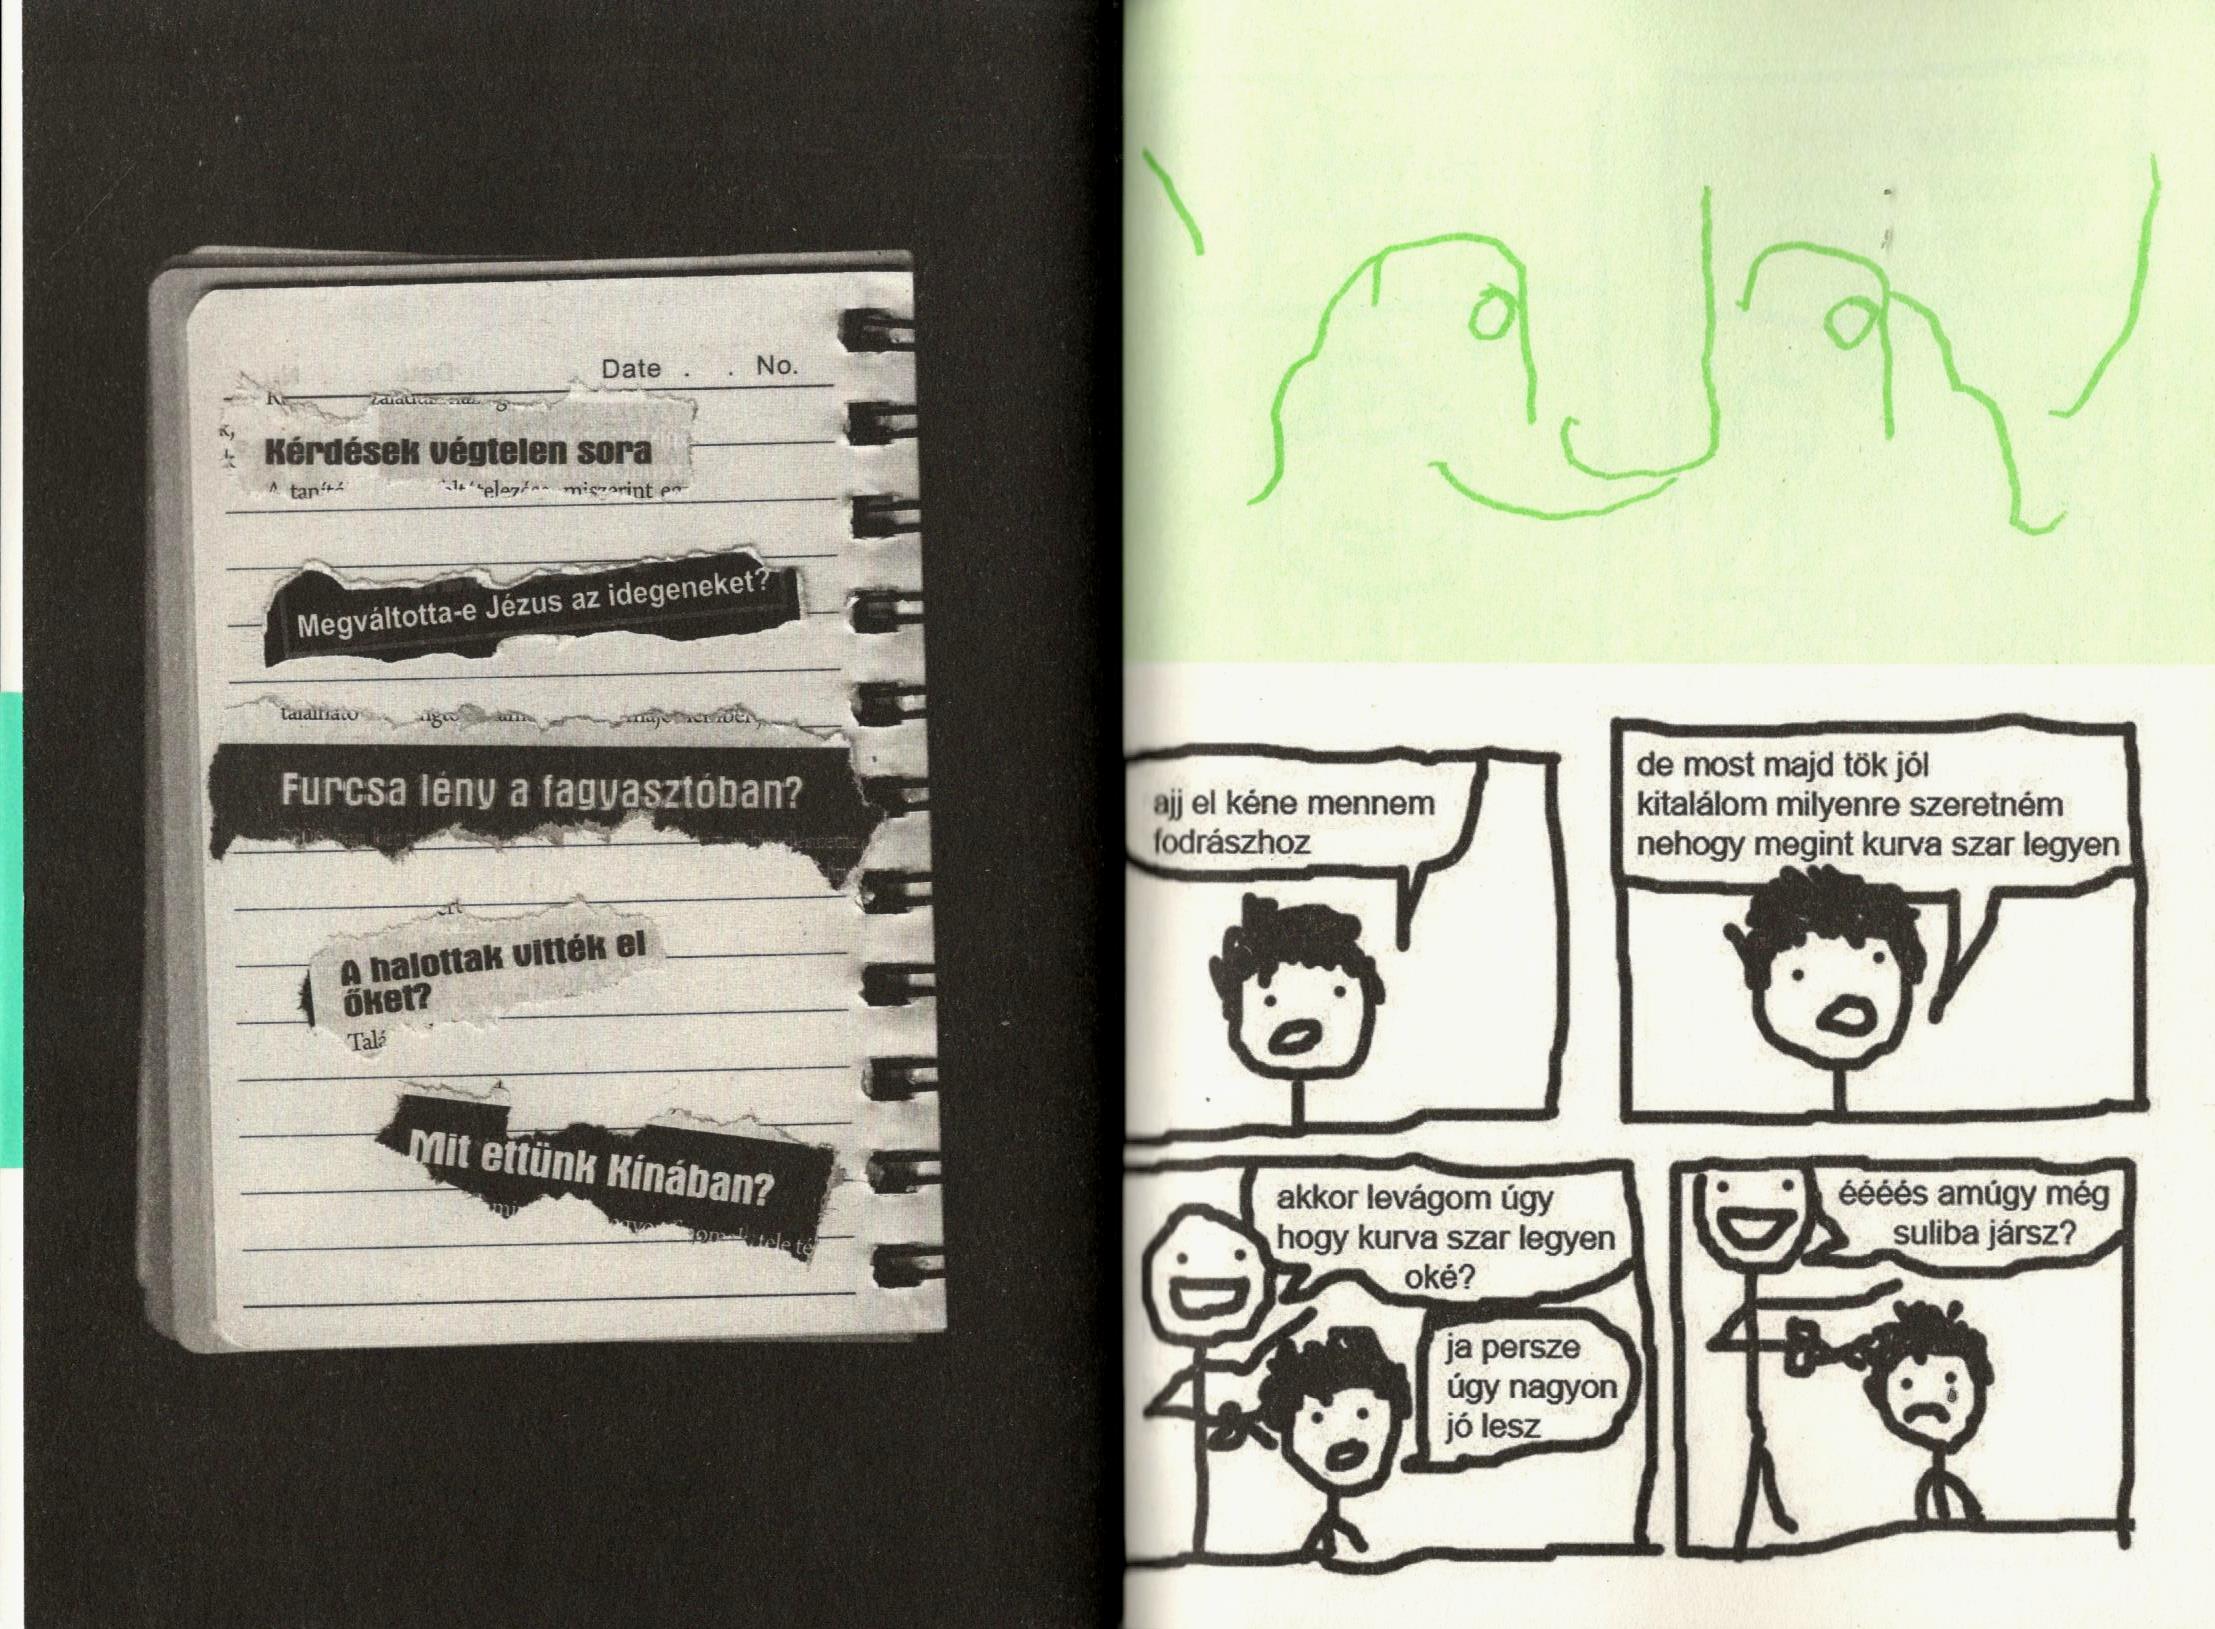 Date . . No.
Kérdések végtelen sora
Megváltotta-e Jézus az idegeneket?
Furcsa lény a fagyasztóban?
A halottak vitték el
őket?
Talá
Mit ettünk Kínában?
ajj el kéne mennem
fodrászhoz
de most majd tök jól
kitalálom milyenre szeretném
nehogy megint kurva szar legyen
akkor levágom úgy
hogy kurva szar legyen
oké?
ja persze
úgy nagyon
jó lesz
éééés amúgy még
suliba jársz?